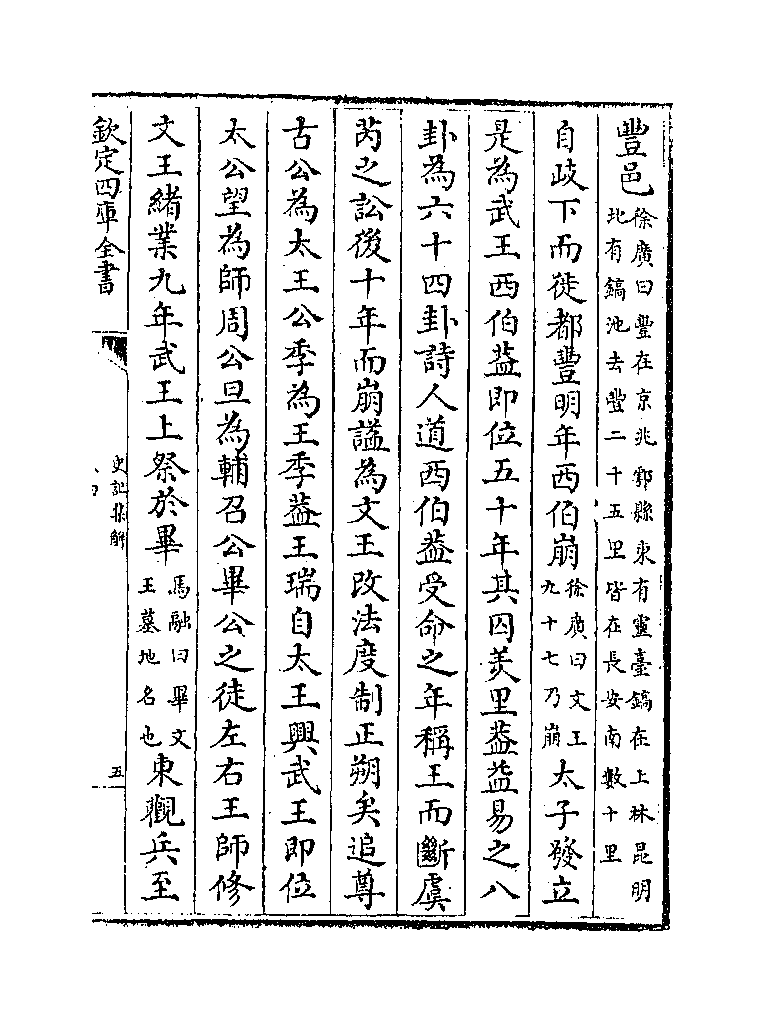 豐邑徐廣曰豐在京兆鄠縣東有靈臺鎬在上林昆明北有鎬池去豐二十五里皆在長安南數十里
自歧下而徙都豐明年西伯崩徐廣曰文王九十七乃崩太子發立
是為武王西伯葢即位五十年其囚羑里葢益易之八
卦為六十四卦詩人道西伯葢受命之年稱王而斷虞
芮之訟後十年而崩謚為文王改法度制正朔矣追尊
古公為太王公季為王季葢王瑞自太王興武王即位
太公望為師周公旦為輔召公畢公之徒左右王師修
文王緒業九年武王上祭於畢馬融曰畢文王墓地名也東觀兵至
欽定四庫全書
史記集解
五